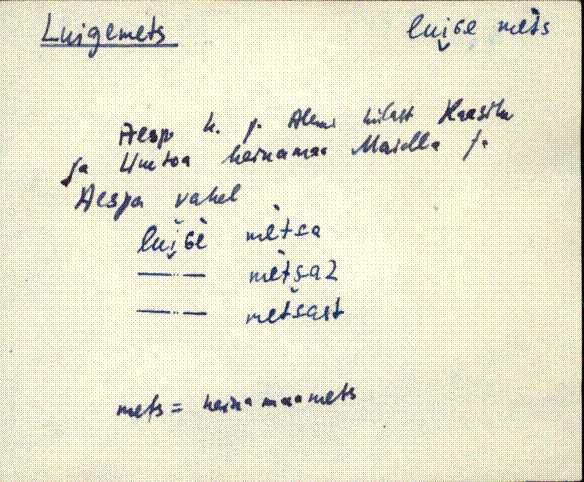 Luigemets
lui̯ɢe mèts
Aespa k. p. Alemi külast Kaasiku
ja Uuetoa heinamaa Maidla ja
Aespa vahel
lui̯ɢè mètsa
—··— mètsaz
—··— metsast
mets = heinamaamets